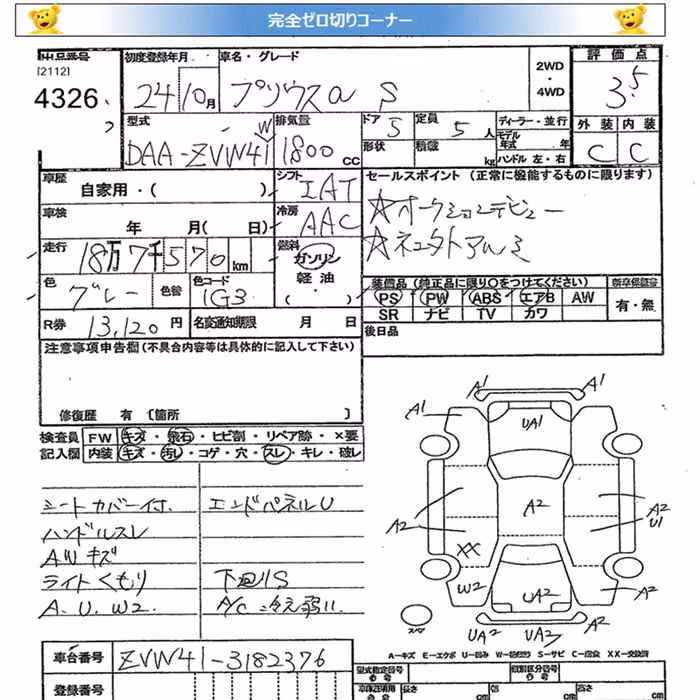 完全ゼロ切りコーナー
出品番号
[2112]
4326
初度登録年月
24 10月
車名・グレード
プリウスα S
2WD
・
4WD
評価点
3.5
型式
DAA-ZVW41W
排気量
1800 CC
ドア 5
形状
定員 5 人
積載 kg
ディーラー・並行
モデル年式 年
ハンドル 左・右
外装 内装
C C
車歴
自家用・( )
シフト
IAT
セールスポイント (正常に機能するものに限ります)
☆オークションデビュー
☆ネクストアルミ
車検
年 月( 日)
冷房
AAC
走行
18万7千570km
燃料
ガソリン
軽油
・( )
色
グレー
色替
色コード
1G3
装備品 (純正品に限り○をつけてください)
PS PW ABS エアB AW
SR ナビ TV カワ
新車保証書
有・無
R券 13,120円
名変通知期限 月 日
後日品
注意事項申告欄 (不具合内容等は具体的に記入して下さい)
修復歴 有 〔箇所 〕
検査員
記入欄
FW キズ・飛石・ヒビ割・リペア跡・×要
内装 キズ・汚し・コゲ・穴・スレ・キレ・破レ
シートカバー付.
ハンドルスレ
AWキズ
ライトくもり
A.U.W2.
エンドパネルU
下廻りS
A/C冷え弱い
A1
A1
A1
UA1
A2
A2
A2
U1
XX
W2
UA2
A2
UA2
UA2
スペア
A=キズ E=エクボ U=凹み W=波打ち S=サビ C=腐食 XX=交換済
車台番号 ZVW41-3182376
登録番号
型式指定番号
類別区分番号
長さ cm
幅 cm
高さ cm